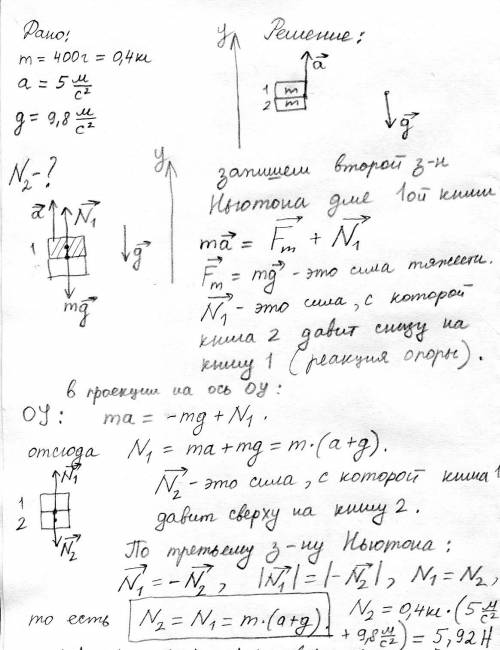 Дано:
m = 400г = 0,4кг
a = 5 м/с²
g = 9,8 м/с²
N₂-?
y
Решение:
a⃗
1 m
2 m
g⃗
a⃗ N⃗₁
1
mg⃗
g⃗
y
запишем второй з-н
Ньютона для 1ой книги
ma⃗ = F⃗m + N⃗₁
F⃗m = mg⃗ - это сила тяжести.
N⃗₁ - это сила, с которой
книга 2 давит снизу на
книгу 1 (реакция опоры).
в проекции на ось OY:
OY: ma = -mg + N₁.
отсюда N₁ = ma + mg = m·(a+g).
N⃗₁
1
2
N⃗₂
N⃗₂ - это сила, с которой книга 1
давит сверху на книгу 2.
По третьему з-ну Ньютона:
N⃗₁ = -N⃗₂, |N⃗₁| = |-N⃗₂|, N₁ = N₂,
то есть N₂ = N₁ = m·(a+g). N₂ = 0,4кг·(5 м/с²
+ 9,8 м/с²) = 5,92 Н